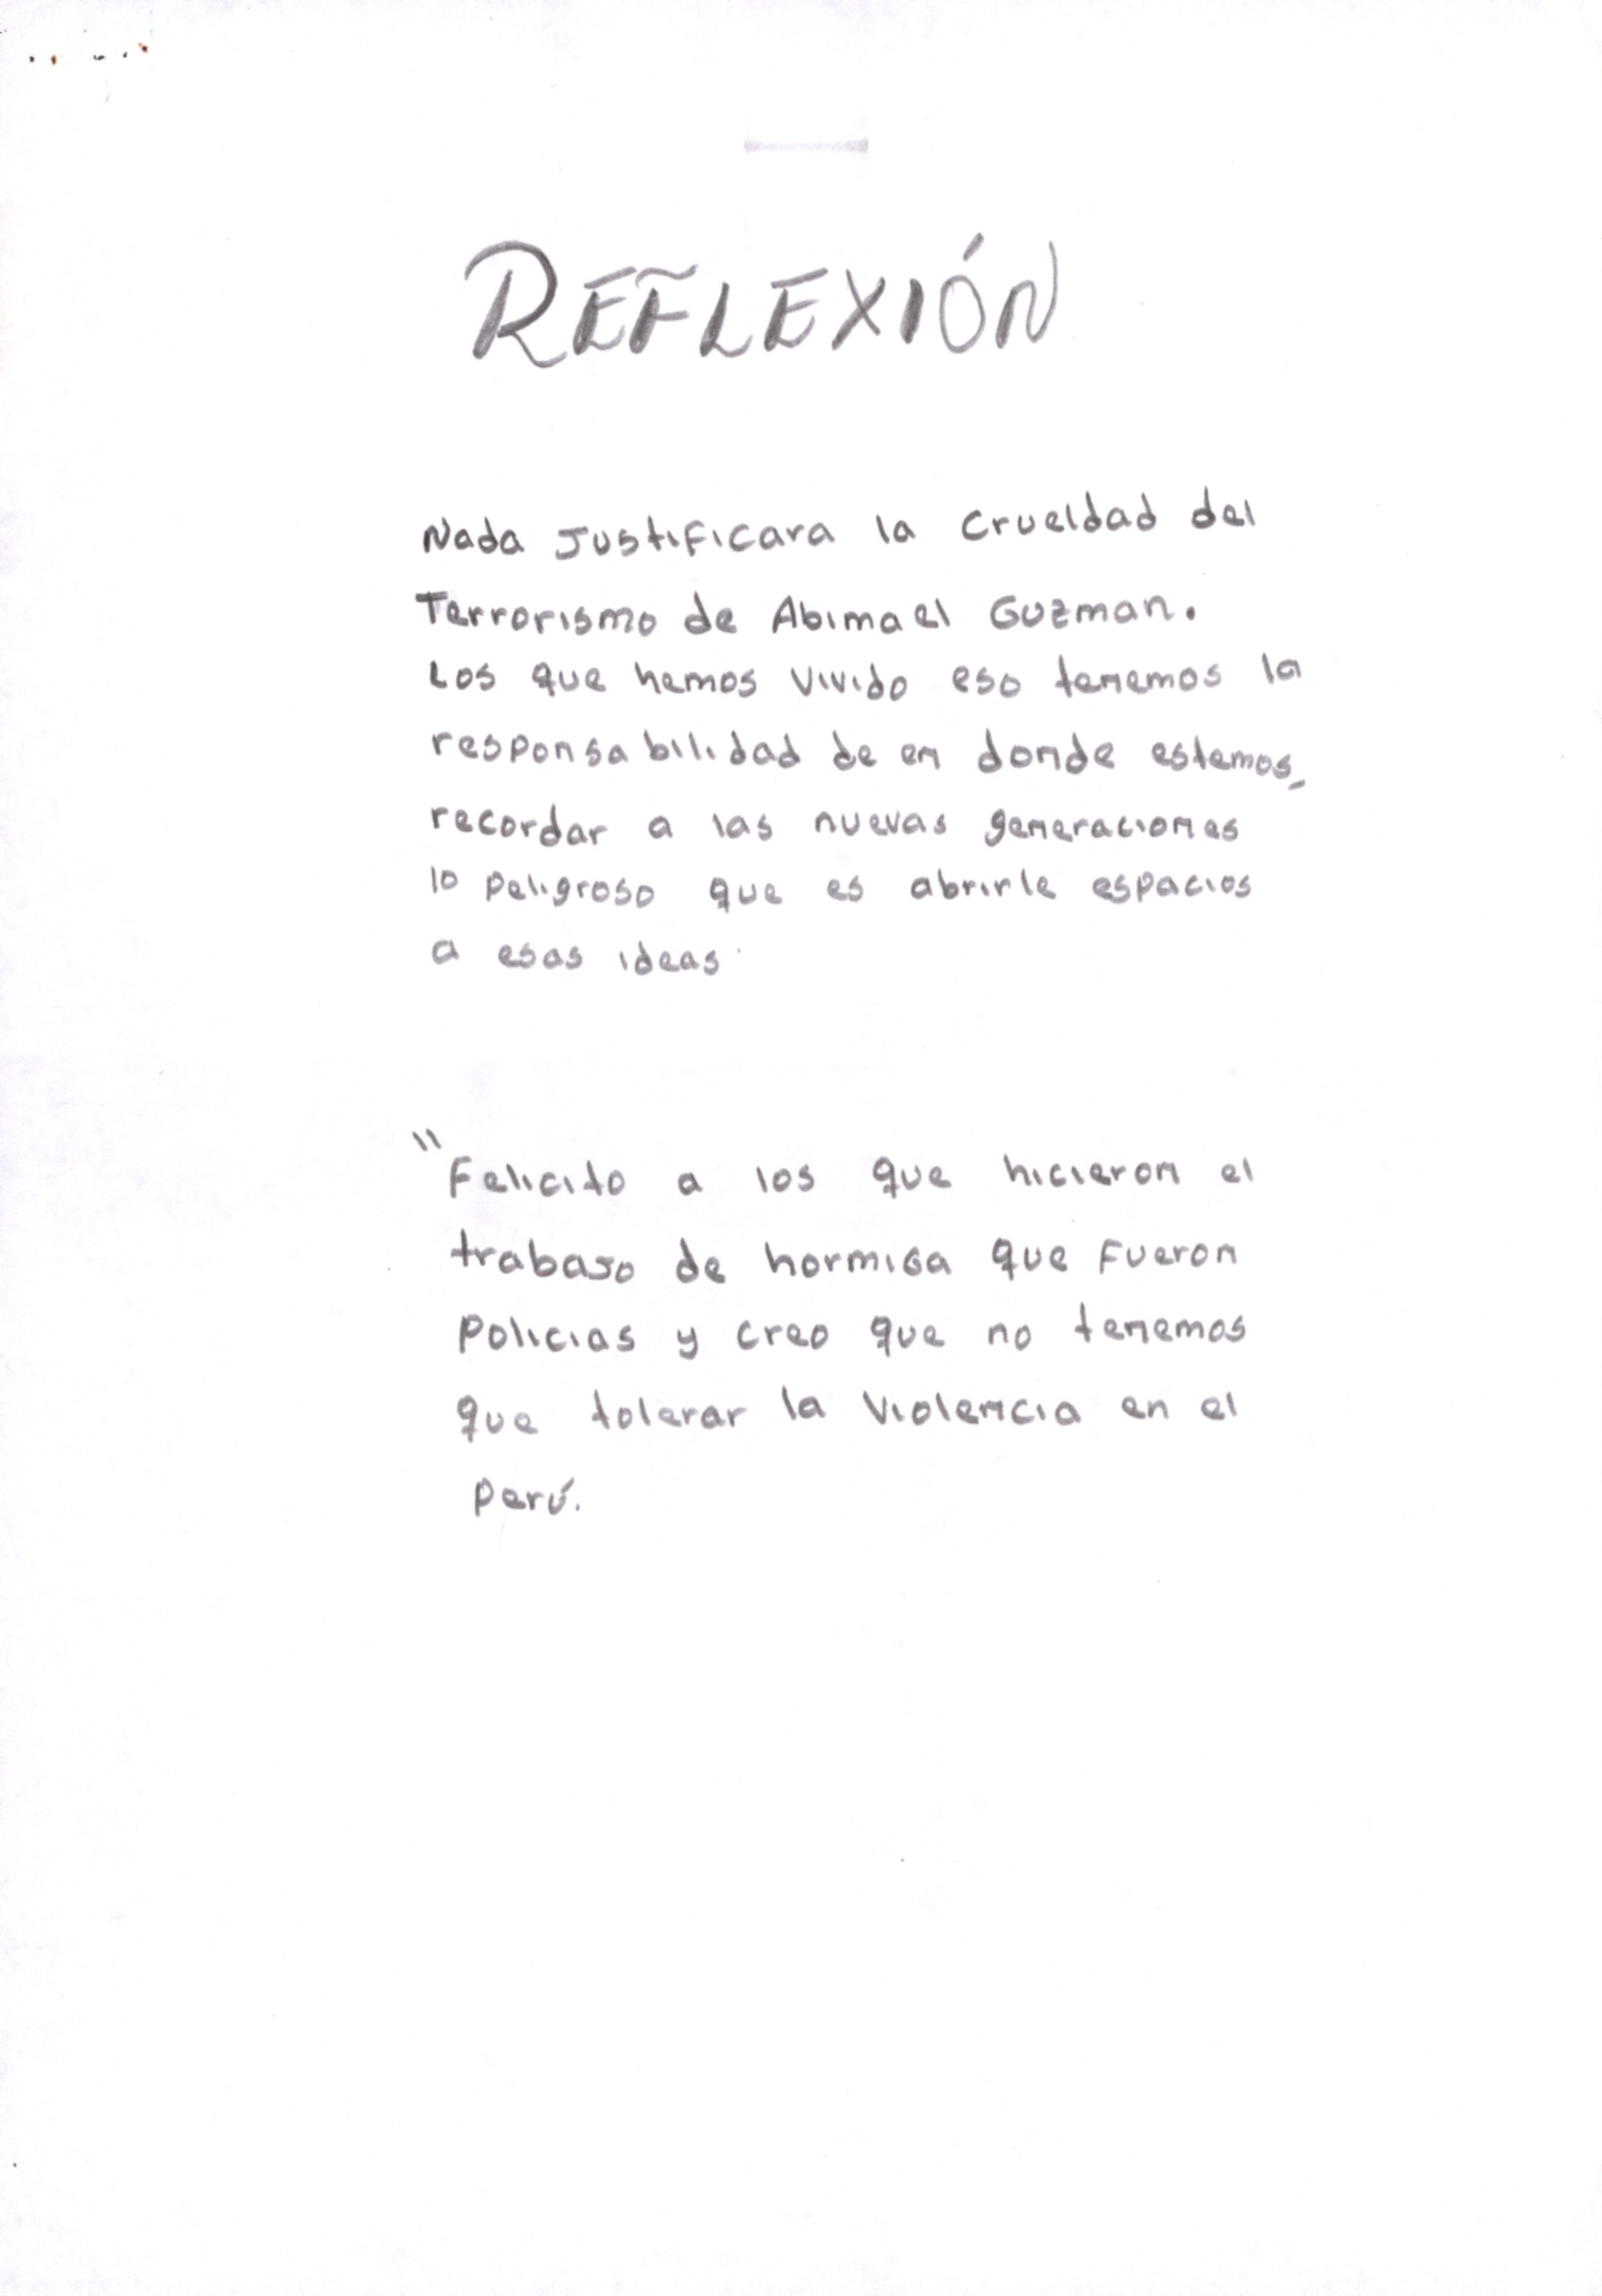 REFLEXIÓN
Nada Justificara la Crueldad del
Terrorismo de Abimael Guzman.
Los que hemos vivido eso tenemos la
responsabilidad de en donde estemos,
recordar a las nuevas generaciones
lo peligroso que es abrirle espacios
a esas ideas.
"Felicito a los que hicieron el
trabajo de hormiga que fueron
policias y creo que no tenemos
que tolerar la violencia en el
perú.